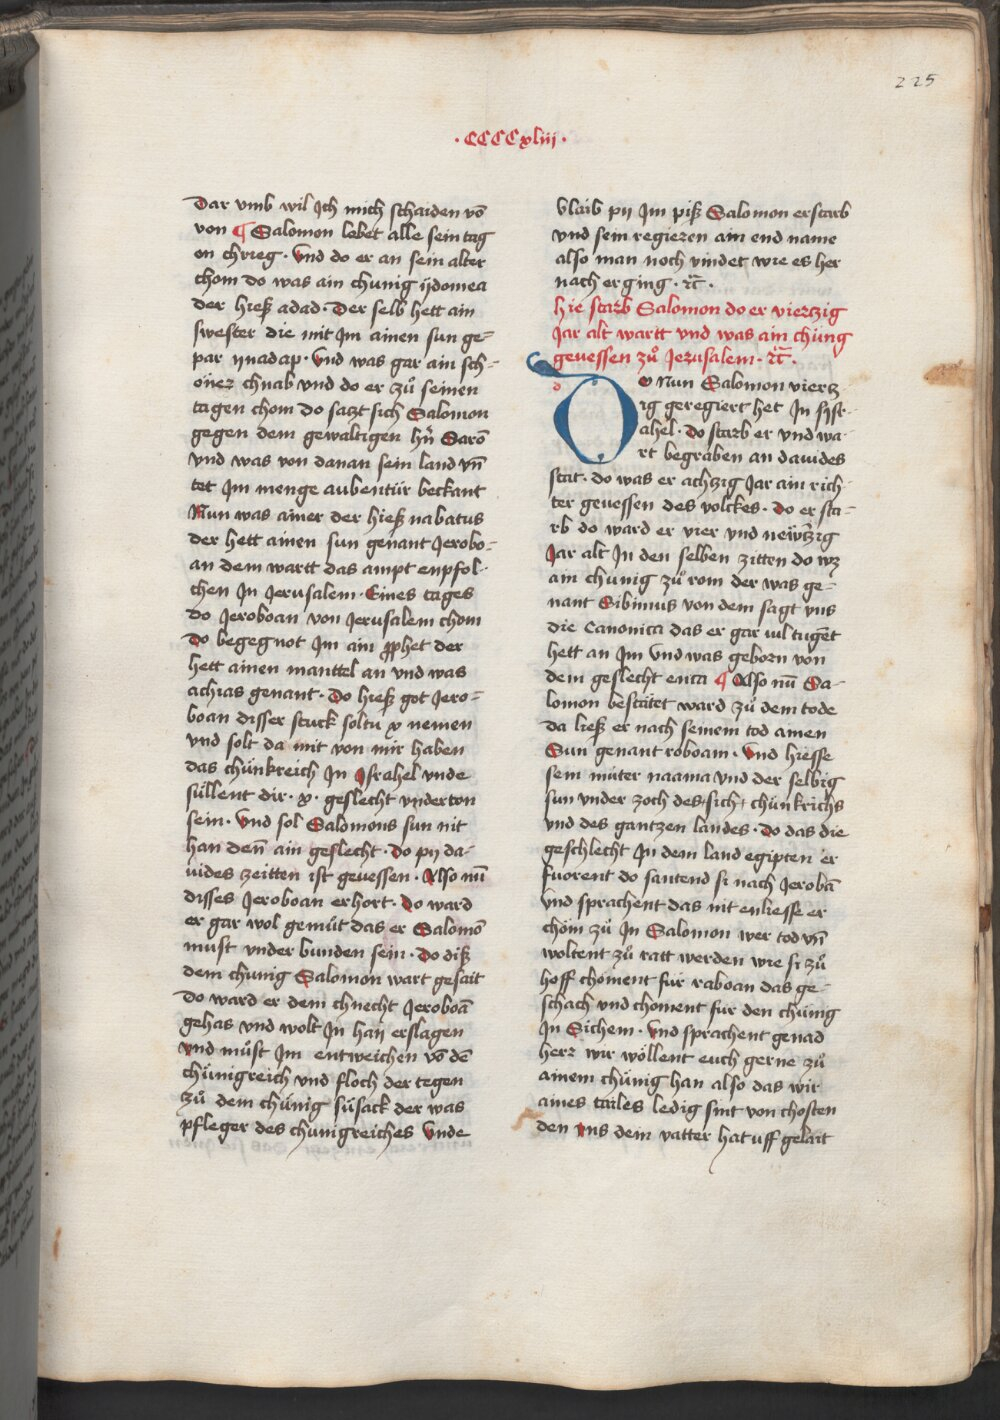 225
· CCCCxliii ·
Dar vmb wil Jch mich schaiden võ
von ¶ Salomon lebet alle sein tag
on chrieg · Vnd do er an sein alter
chom do was ain chunig ÿdomea
der hieß adad · Der selb hett ain
swester die mit Jm ainen sun ge=
par ynadap · Vnd was gar ain sch=
öner chnab vnd do er zů seinen
tagen chom do satzt sich Salomon
gegen dem gewaltigen hñ Sarõ
vnd was von danan sein land vñ
tet Jm menge aubentür beckant
Nun was ainer der hieß nabatus
der hett ainen sun genant Jerobo=
an dem wartt das ampt enpfol=
chen Jn Jerusalem · Eines tages
do Jeroboan von Jerusalem chom
Do begegnot Jm ain ꝓphet der
hett ainen manttel an vnd was
achias genant · Do hieß got Jero=
boan disser stuck soltu x nemen
vnd solt da mit von mir haben
das chünkreich Jn Jsrahel vnde
süllent dir · x · geslecht vnderton
sein · Vnd sol Salomons sun nit
han deñ ain geslecht · Do pij da-
uides zeitten ist geuessen · Also nũ
disses Jeroboan erhort · Do ward
er gar wol gemůt das er Salomõ
must vnder bunden sein · Do diß
dem chunig Salomon wart gesait
Do ward er dem chnecht Jeroboã
gehas vnd wolt Jn han erslagen
vnd můst Jm entweichen võ dẽ
chünigreich vnd floch der tegen
zů dem chünig süsack der was
pfleger des chunigreiches Vnde
blaib pij Jm piß Salomon erstarb
vnd sein regieren ain end name
also man noch vindet wie es her
nach erging · ꝛc̃ ·
hie starb Salomon do er viertzig
Jar alt wartt vnd was ain chung
geuessen zů Jerusalem · ꝛc̃ ·
Do Nun Salomon viertz
ig geregiert het Jn Jsr-
ahel · do starb er vnd wa-
rt begraben an dauides
stat · do was er achzig Jar ain rich-
ter geuessen des volckes · do er sta=
rb do ward er vier vnd neẅtzig
Jar alt Jn den selben zitten do wz
ain chunig zů rom der was ge-
nant Sibimus von dem sagt vns
die Canonica das er gar uil tugẽt
hett an Jm Vnd was geborn von
dem geslecht enea ¶ Also nũ Sa-
lomon bestätet ward zů dem tode
da ließ er nach seinem tod ainen
Sun genant roboam · Vnd hiesse
sein můter naama vnd der selbig
sun vnder zoch des sich chünkrichs
vnd des gantzen landes · Do das die
geschlecht Jn dem land egipten er
fuorent do santend si nach Jerobã
Vnd sprachent das nit enliesse er
chöm zů Jn Salomon wer tod vñ
woltent zů ratt werden wie si zů
hoff choment für raboan das ge-
schach vnd choment für den chünig
Jn Sichem · Vnd sprachent genad
herr wir wöllent euch gerne zů
ainem chünig han also das wir
aines tailes ledig sint von chosten
den vns dein vatter hat uff gelait